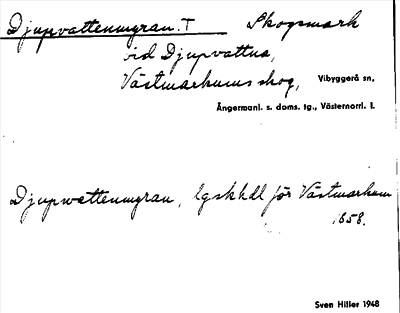 Djupvattenmyran. T Skogsmark
vid Djupvattna,
Västmarkums skog, Vibyggerå sn,
Ångermanl. s. doms. tg., Västernorrl. l.
Djupvattenmyran, lgskhdl för Västmarkum
1858.
Sven Hiller 1948